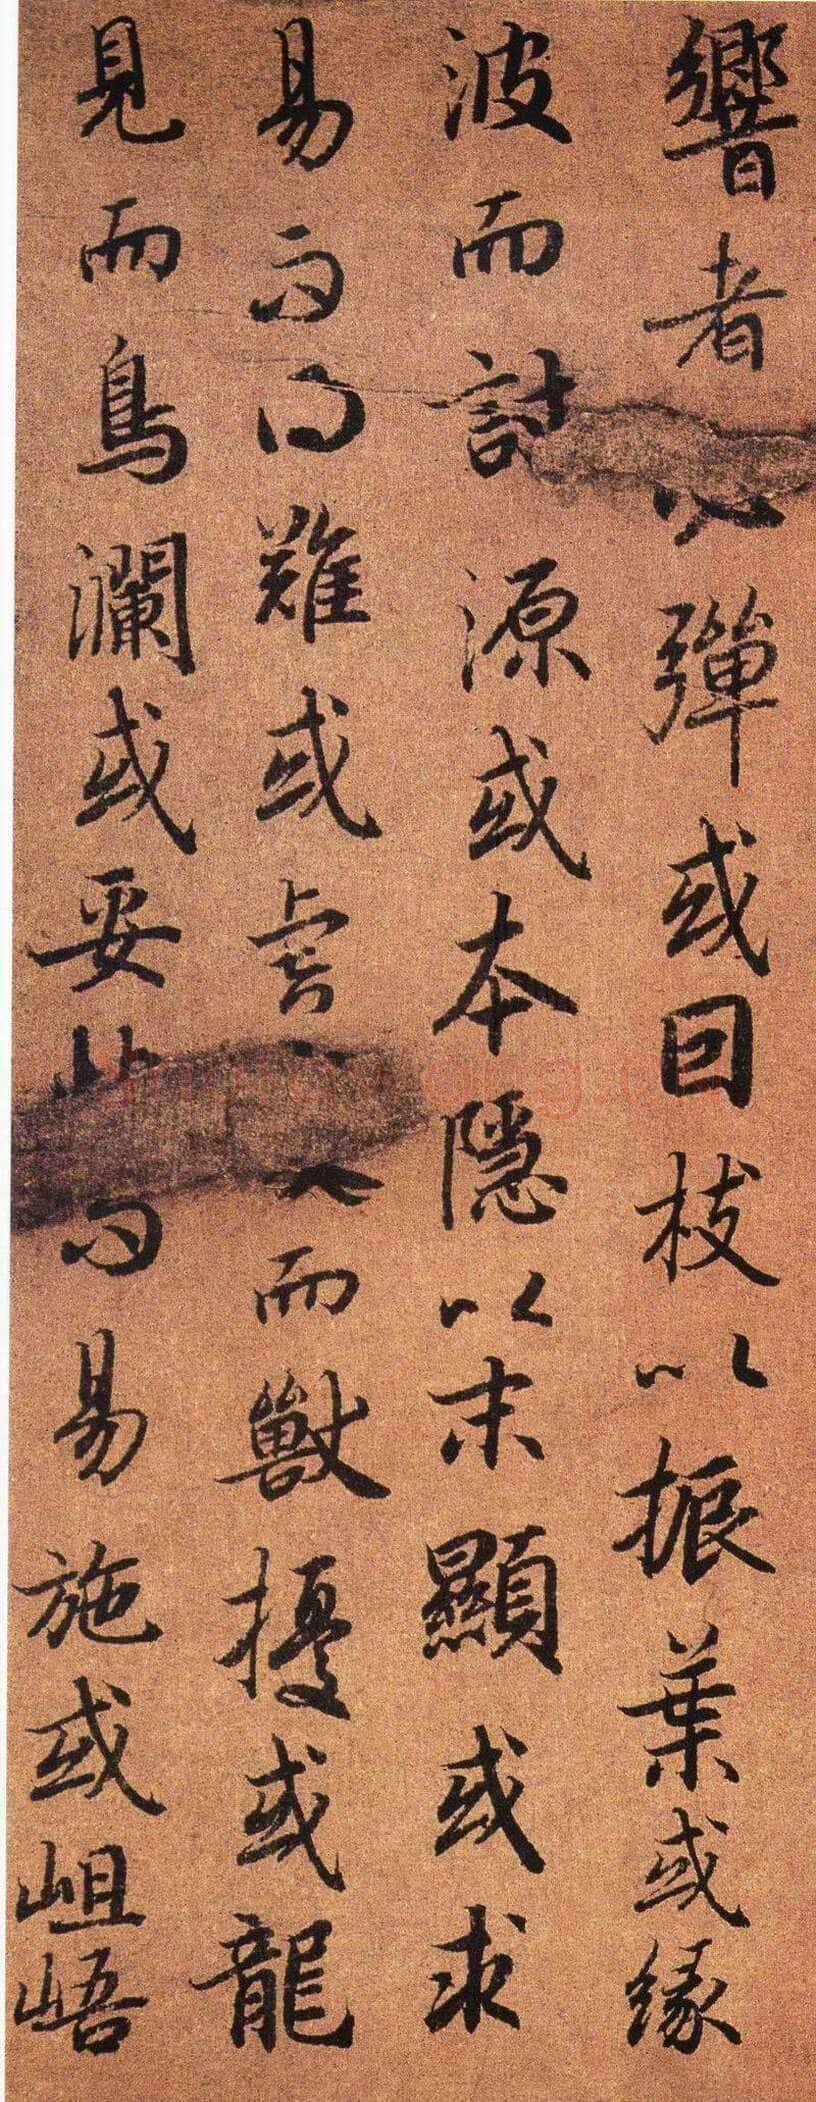 響者必彈或因枝以振葉或緣
波而討源或本隱以末顯或求
易而得難或虎而獸擾或龍
見而鳥瀾或妥而易施或岨峿